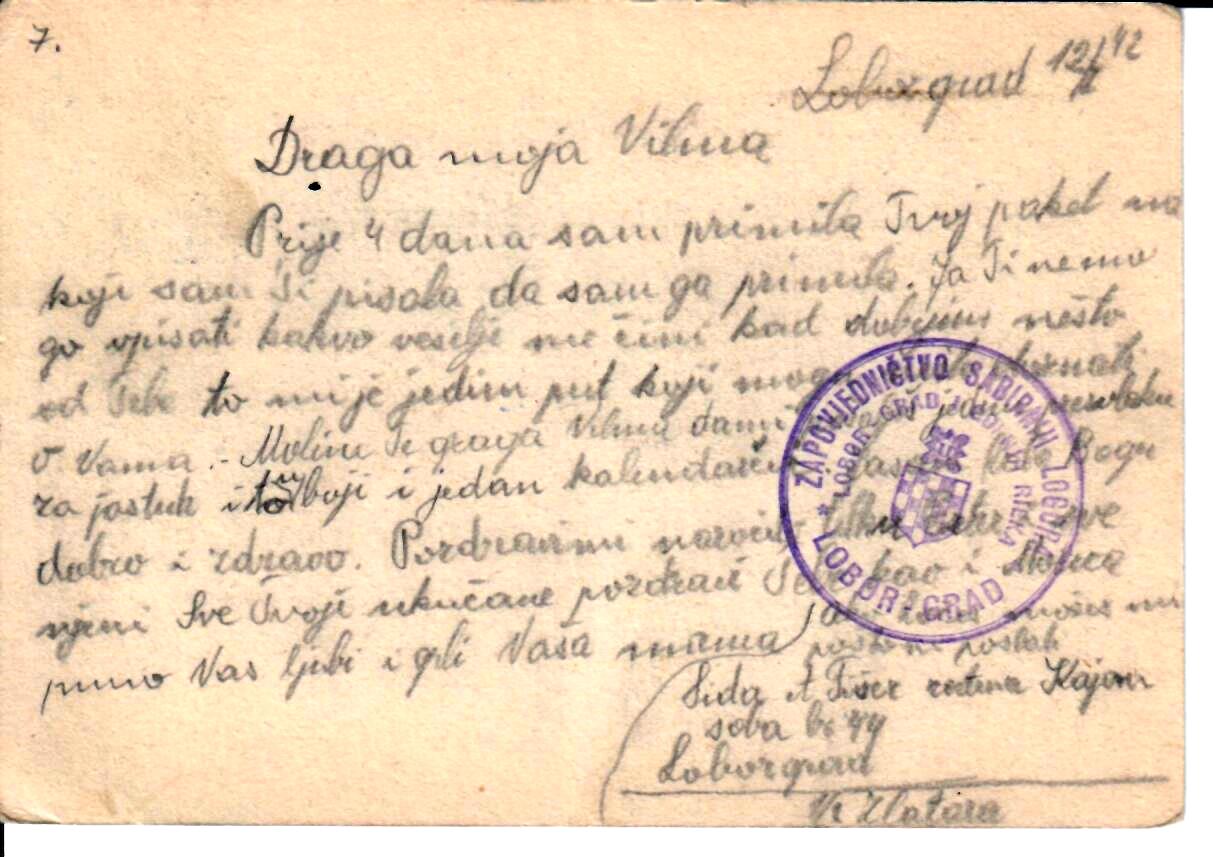 7.
Loborgrad 12/II 42
Draga moja Vilma
Prije 4 dana sam primila Tvoj paket na
koji sam Ti pisala da sam ga primila. Ja Ti nemo
go opisati kakvo veselje me čini kad dobijem nešto
od Tebe to mi je jedini put koji
o Vama. Molim Te draga Vilma
za jastuk i to u boji i jedan Bogu
dobro i zdravo. Pozdravi mi sve
Sve Tvoje ukućane pozdravi kao i
puno Vas ljubi i grli Vaša mama
možeš mi
poslati
Sida A Fišer rođena Kajon
soba br 44
Loborgrad
Zlatara
ZAPOVJEDNIČTVO SABIRNIH LOGORA
LOBOR GRAD I GORNJA RIEKA
LOBOR-GRAD